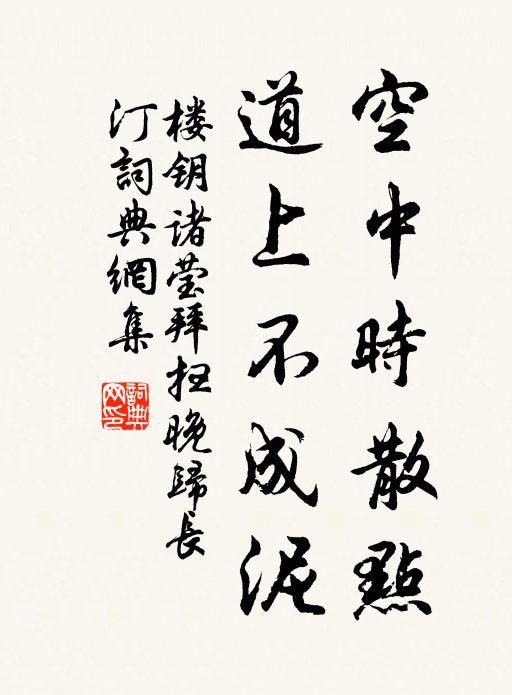 空中時散點
道上不成泥
楼钥诸莹拜扫晚歸长
汀詞典網集
詞典
网印